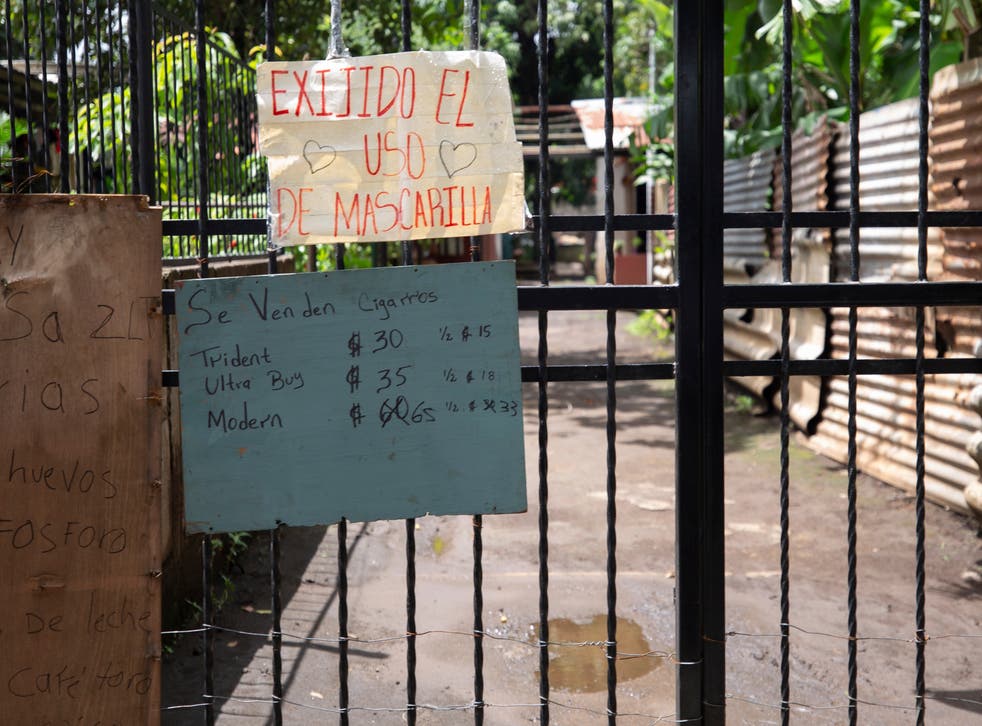 EXIJIDO EL
USO
DE MASCARILLA
Se Venden Cigarrios
Trident $ 30 ½ $ 15
Ultra Buy $ 35 ½ $ 18
Modern $ 60 65 ½ $ 30 33
y
Sa 20
rias
huevos
FOSFORO
De leche
Café toro